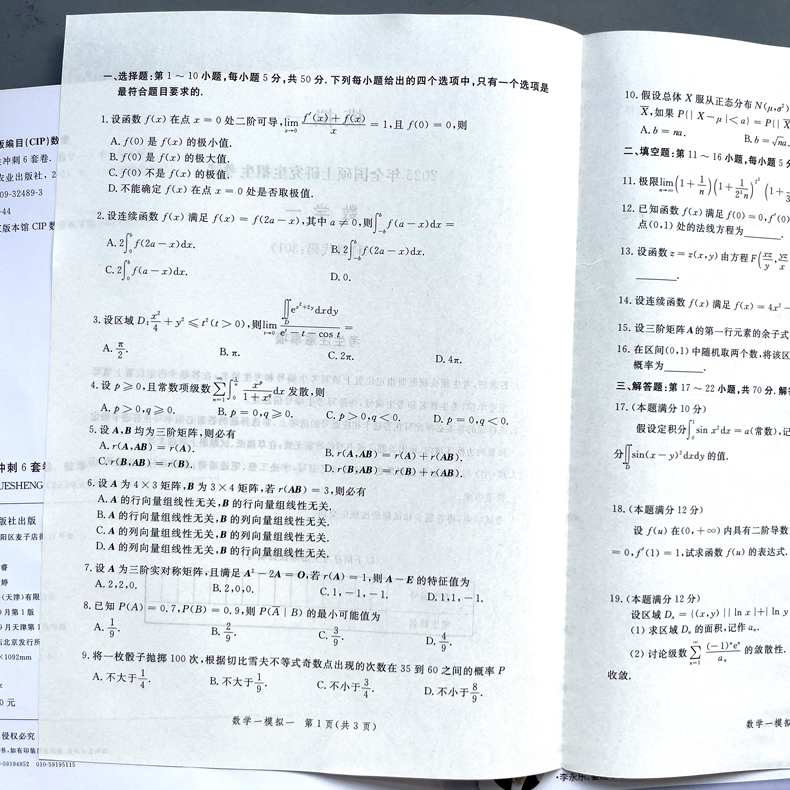 一、选择题:第 1 ～ 10 小题,每小题 5 分,共 50 分. 下列每小题给出的四个选项中,只有一个选项是
最符合题目要求的.
1. 设函数 f(x) 在点 x = 0 处二阶可导, lim_{x→0} (f′(x) + f(x))/x = 1,且 f(0) = 0,则
A. f(0) 是 f(x) 的极小值.
B. f(0) 是 f(x) 的极大值.
C. f(0) 不是 f(x) 的极值.
D. 不能确定 f(x) 在点 x = 0 处是否取极值.
2. 设连续函数 f(x) 满足 f(x) = f(2a − x),其中 a ≠ 0,则 ∫_{−b}^{b} f(a − x)dx =
A. 2∫_0^b f(2a − x)dx. B. 2∫_{−b}^{b} f(2a − x)dx.
C. 2∫_0^b f(a − x)dx. D. 0.
3. 设区域 D: x²/4 + y² ≤ t²(t > 0),则 lim_{t→0} (∬_D e^{x²+2y} dxdy)/(e^t − t − cos t) =
A. π/2. B. π. C. 2π. D. 4π.
4. 设 p ≥ 0,且常数项级数 ∑_{n=1}^∞ ∫_0^{1/n} x^p/(1 + x^q) dx 发散,则
A. p > 0, q ≥ 0. B. p = 0, q ≥ 0. C. p > 0, q < 0. D. p = 0, q < 0.
5. 设 A,B 均为三阶矩阵,则必有
A. r(A,AB) = r(A). B. r(A,AB) = r(A) + r(AB).
C. r(B,AB) = r(B). D. r(B,AB) = r(B) + r(AB).
6. 设 A 为 4 × 3 矩阵,B 为 3 × 4 矩阵,若 r(AB) = 3,则必有
A. A 的行向量组线性无关,B 的行向量组线性无关.
B. A 的行向量组线性无关,B 的列向量组线性无关.
C. A 的列向量组线性无关,B 的列向量组线性无关.
D. A 的列向量组线性无关,B 的行向量组线性无关.
7. 设 A 为三阶实对称矩阵,且满足 A² − 2A = O,若 r(A) = 1,则 A − E 的特征值为
A. 2,2,0. B. 2,0,0. C. 1,−1,−1. D. 1,1,−1.
8. 已知 P(A) = 0.7,P(B) = 0.9,则 P(A̅ | B) 的最小可能值为
A. 1/9. B. 2/9. C. 3/9. D. 4/9.
9. 将一枚骰子抛掷 100 次,根据切比雪夫不等式奇数点出现的次数在 35 到 60 之间的概率 P
A. 不大于 1/4. B. 不大于 1/9. C. 不小于 3/4. D. 不小于 8/9.
数学一模拟一 第 1 页(共 3 页)
10. 假设总体 X 服从正态分布 N(μ,σ²)
X̅,如果 P{| X − μ |< a} = P{| X̅
A. b = na. B. b = √n a.
二、填空题:第 11 ～ 16 小题,每小题 5 分
11. 极限 lim_{n→∞} (1 + 1/n)(1 + 1/2²n)² (1 +
12. 已知函数 f(x) 满足 f(0) = 0,f′(0)
点(0,1) 处的法线方程为______.
13. 设函数 z = z(x,y) 由方程 F(xz/y, yx
______.
14. 设连续函数 f(x) 满足 f(x) = 4x² −
15. 设三阶矩阵 A 的第一行元素的余子式
16. 在区间(0,1) 中随机取两个数,将该区
概率为______.
三、解答题:第 17 ～ 22 小题,共 70 分. 解答
17.(本题满分 10 分)
假设定积分 ∫_0^1 sin x² dx = a(常数),记
分 ∬_D sin(x − y)² dxdy 的值.
18.(本题满分 12 分)
设 f(u) 在(0,+∞) 内具有二阶导数
= 0,f′(1) = 1,试求函数 f(u) 的表达式.
19.(本题满分 12 分)
设区域 Dₙ = {(x,y) || ln x |+| ln y
(1) 求区域 Dₙ 的面积,记作 aₙ.
(2) 讨论级数 ∑_{n=1}^∞ (−1)ⁿeⁿ/aₙ 的敛散性.
收敛.
数学一模拟一
版编目(CIP)数
冲刺 6 套卷.
农业出版社, 2
09-32489-3
-44
版本馆 CIP 数
冲刺 6 套卷
UESHENG
版社出版
阳区麦子店街
睿
婷
(天津)有限
月第 1 版
9 月天津第 1
北京发行所
×1092mm
0 元
侵权必究
书,如有印装
-59194952 010-59195115